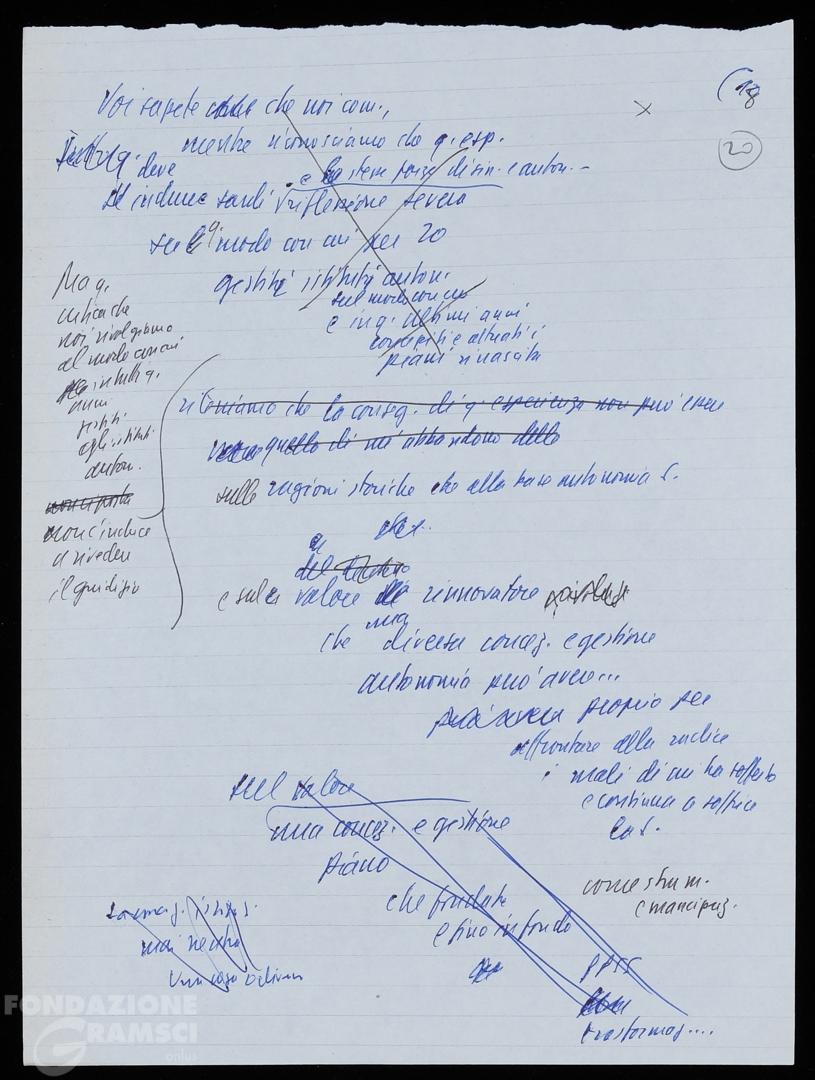 (18
20
Voi sapete che noi com.,
mentre riconosciamo che q. esp.
deve
e la stessa forza di sin. e auton. -
induce sardi riflessione severa
sul modo con cui per 20
gestiti istituti auton.
sul modo con cui
e in q. ultimi anni
concepiti e attuati i
piani rinascita
Ma q.
critica che
noi rivolgiamo
al modo con cui
in tutti q.
anni
gestiti
agli istituti
auton.
non ci porta
non c'induce
a rivedere
il giudizio
riteniamo che la conseg. di q. esperienza non può essere
quella di un'abbandono della
sulle ragioni storiche che alla base autonomia S.
e sul valore rinnovatore
che una diversa concez. e gestione
autonomia può avere...
può avere proprio per
affrontare alla radice
i mali di cui ha sofferto
e continua a soffrire
la S.
sul valore
una concez. e gestione
piano
che fondato
e fino in fondo
come strum.
emancipaz.
mai neutro
PPSS
trasformaz....
FONDAZIONE
GRAMSCI
onlus